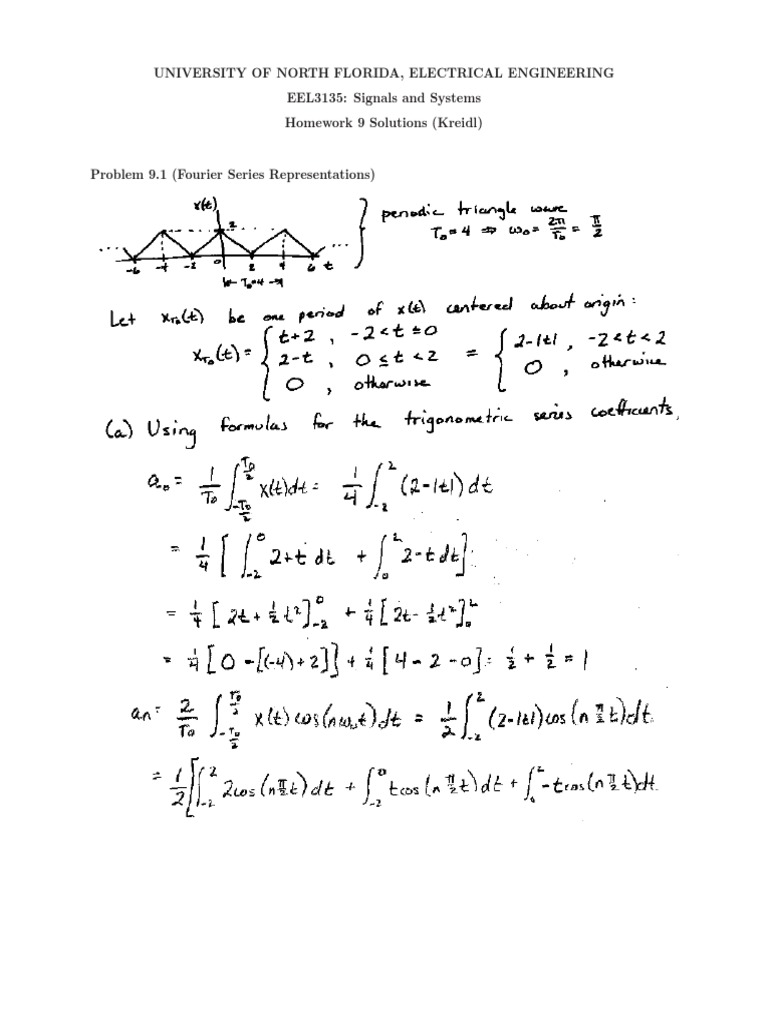 UNIVERSITY OF NORTH FLORIDA, ELECTRICAL ENGINEERING
EEL3135: Signals and Systems
Homework 9 Solutions (Kreidl)
Problem 9.1 (Fourier Series Representations)
x(t)
2
... ...
-6 -4 -2 0 2 4 6 t
|← T₀=4 →|
} periodic triangle wave
T₀=4 ⇒ ω₀= 2π/T₀ = π/2
Let x_T₀(t) be one period of x(t) centered about origin:
x_T₀(t) = { t+2 , -2<t≤0 = { 2-|t| , -2<t<2
2-t , 0≤t<2
0 , otherwise 0 , otherwise
(a) Using formulas for the trigonometric series coefficients,
a₀ = 1/T₀ ∫_{-T₀/2}^{T₀/2} x(t)dt = 1/4 ∫_{-2}^{2} (2-|t|) dt
= 1/4 [ ∫_{-2}^{0} 2+t dt + ∫_{0}^{2} 2-t dt ]
= 1/4 [ 2t + 1/2 t² ]_{-2}^{0} + 1/4 [ 2t - 1/2 t² ]_{0}^{2}
= 1/4 [ 0 - [(-4)+2]] + 1/4 [ 4 - 2 - 0 ] = 1/2 + 1/2 = 1
an = 2/T₀ ∫_{-T₀/2}^{T₀/2} x(t) cos(nω₀t) dt = 1/2 ∫_{-2}^{2} (2-|t|) cos(n π/2 t) dt
= 1/2 [ ∫_{-2}^{2} 2cos(n π/2 t) dt + ∫_{-2}^{0} t cos(n π/2 t) dt + ∫_{0}^{2} -t cos(n π/2 t) dt